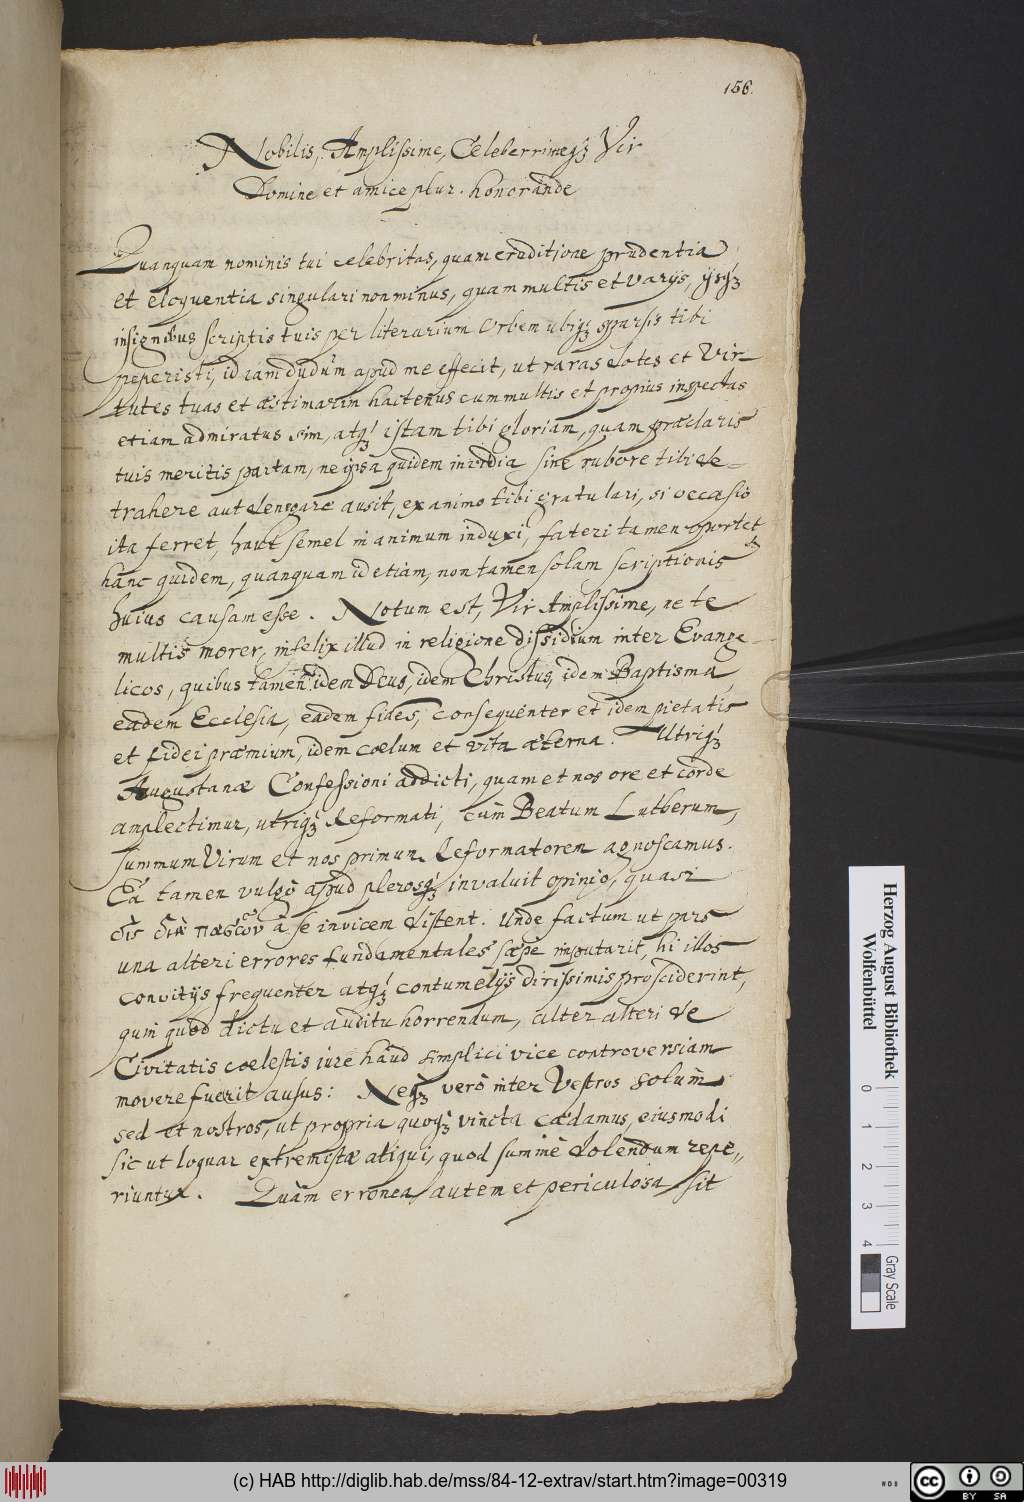 156.
Nobilis, Amplissime, Celeberrimeq́ȝ Vir
Domine et amice plur. honorande
Quanquam nominis tui celebritas, quam eruditione prudentia
et eloquentia singulari non minus, quam multis et varijs, ijsq́ȝ
insignibus scriptis tuis per literarium Orbem ubiq́ȝ sparsis tibi
peperisti, id iam dudum apud me effecit, ut raras dotes et Vir-
tutes tuas et æstimarim hactenus cum multis et propius inspectas
etiam admiratus sim, atq́ȝ istam tibi gloriam, quam præclaris
tuis meritis partam, ne ipsa quidem invidia sine rubore tibi de-
trahere aut denegare ausit, ex animo tibi gratulari, si occasio
ita ferret, haut semel in animum induxi, fateri tamen oportet
hanc quidem, quanquam id etiam, non tamen solam scriptionis
huius causam esse. Notum est, Vir Amplissime, ne te
multis morer, infelix illud in religione dissidium inter Evange-
licos, quibus tamen idem Deus, idem Christus, idem Baptisma,
eadem Ecclesia, eadem fides, consequenter et idem pietatis
et fidei præmium, idem cœlum et vita æterna. Utriq́ȝ
Augustanæ Confessioni addicti, quam et nos ore et corde
amplectimur, utriq́ȝ Reformati, cùm Beatum Lutherum,
summum Virum et nos primum Reformatorem agnoscamus.
Ea tamen vulgò apud plerosq́ȝ invaluit opinio, quasi
δὶς διὰ πασῶν à se invicem distent. Unde factum ut pars
una alteri errores fundamentales sæpe imputarit, hi illos
convitijs frequenter atq́ȝ contumelijs dirissimis prosciderint,
quin quod dictu et auditu horrendum, alter alteri de
Civitatis cœlestis iure haud simplici vice controversiam
movere fuerit ausus: Neq́ȝ verò inter Vestros solum
sed et nostros, ut propria quoq́ȝ vincta cædamus, eiusmodi
sic ut loquar extremistæ aliqui, quod summè dolendum repe„
riuntur. Quàm erronea autem et periculosa sit
Herzog August Bibliothek
Wolfenbüttel
0 1 2 3 4
Gray Scale
(c) HAB http://diglib.hab.de/mss/84-12-extrav/start.htm?image=00319
cc BY SA